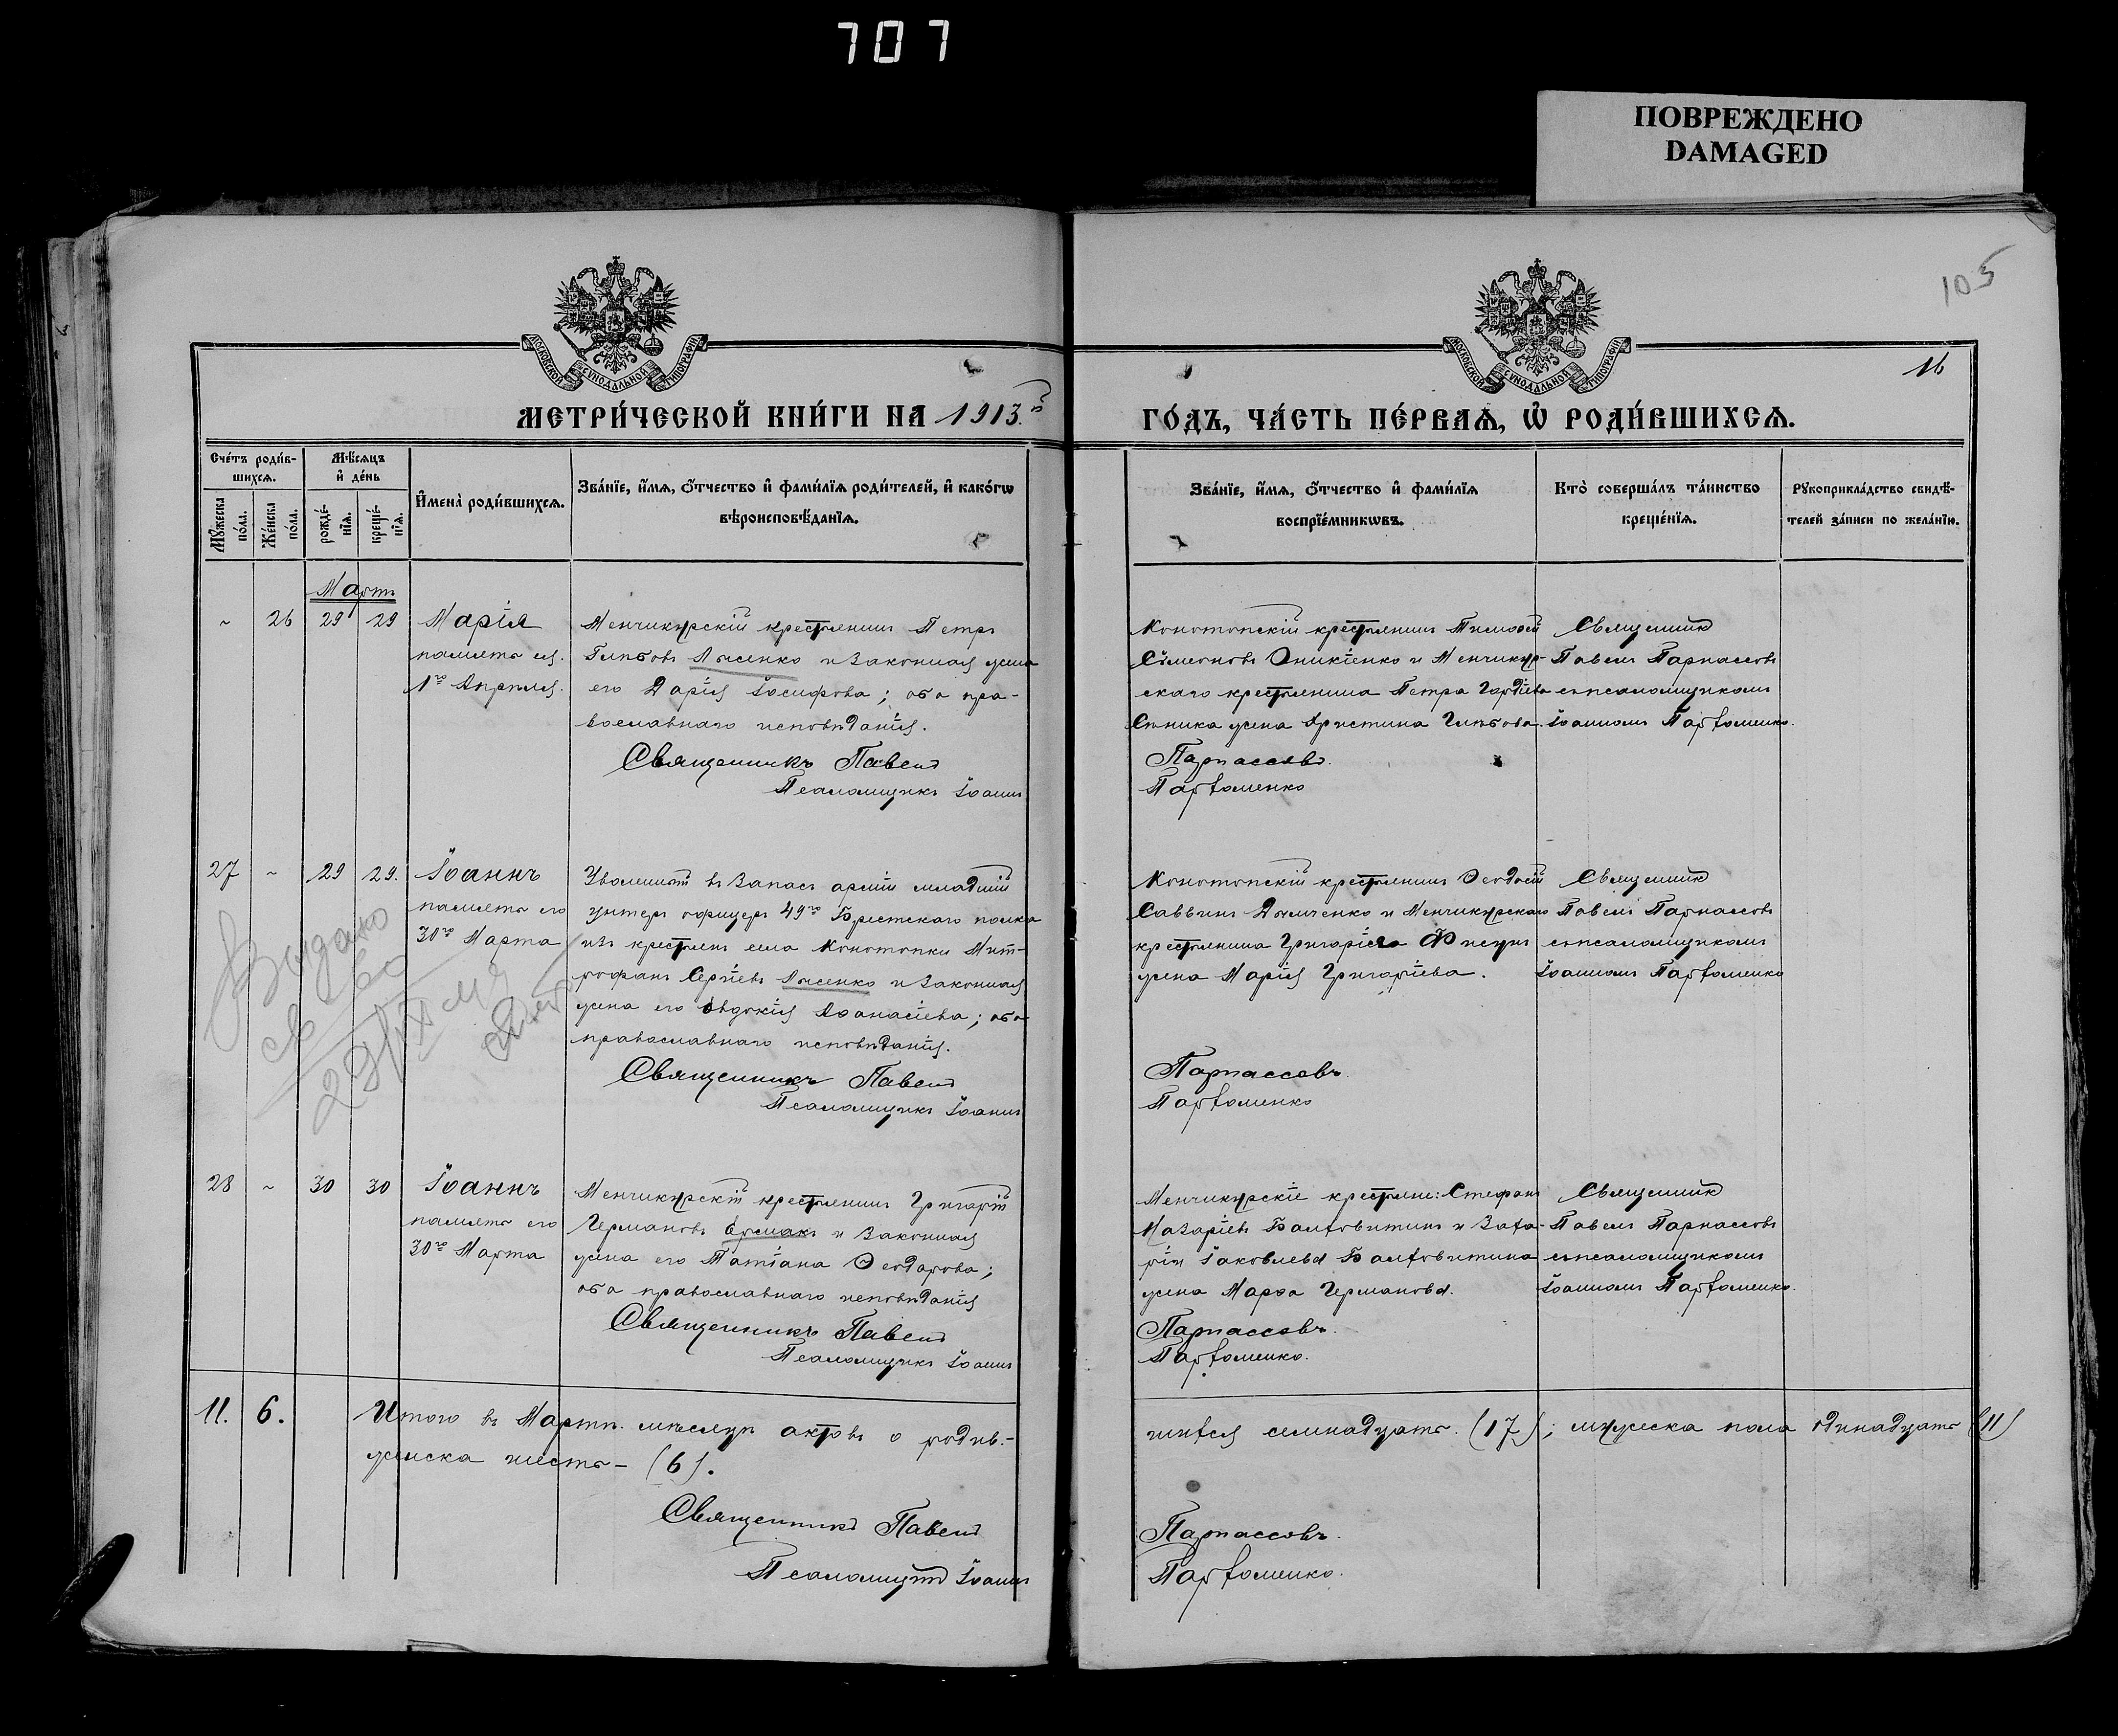 707
ПОВРЕЖДЕНО
DAMAGED
105
МОСКОВСКОЙ СѴНОДАЛЬНОЙ ТИПОГРАФІИ
МОСКОВСКОЙ СѴНОДАЛЬНОЙ ТИПОГРАФІИ
16
МЕТРИ́ЧЕСКОЙ КНИ́ГИ НА 1913.й
ГО́ДЪ, ЧА́СТЬ ПЕ́РВАѦ, Ѡ҆ РОДИ́ВШИХСѦ.
Сче́тъ роди́в-
шихсѧ.
Мѣ́сѧцъ
и҆ де́нь
Мꙋ́жеска по́ла.
Же́нска по́ла.
рожде́-нїѧ.
креще́-нїѧ.
И҆мена̀ роди́вшихсѧ.
Зва́нїе, и҆́мѧ, ѻ҆́тчество и҆ фами́лїѧ роди́телей, и҆ како́гѡ
вѣроисповѣ́данїѧ.
Зва́нїе, и҆́мѧ, ѻ҆́тчество и҆ фами́лїѧ
воспрїе́мникѡвъ.
Кто̀ соверша́лъ та́инство
креще́нїѧ.
Рꙋкоприкла́дство свидѣ́-
телей за́писи по жела́нїю.
Мартъ
~ 26 29 29
Марія
память ея
1го Апрѣля.
Менчикурскій крестьянинъ Петръ
Глѣбовъ Лысенко и законная жена
его Дарія Іосифова; оба пра-
вославнаго исповѣданія.
Священникъ Павелъ
Псаломщикъ Іоаннъ
Конотопскій крестьянинъ Тимоѳей
Сѵмеоновъ Оникіенко и Менчикур-
скаго крестьянина Петра Гордіева
жена Христина Глѣбова.
Парнассовъ.
Парѳоменко
Священникъ
Павелъ Парнассовъ
съ псаломщикомъ
Іоанномъ Парѳоменко.
27 ~ 29 29.
Іоаннъ
память его
30го Марта
Выдано
Уволенный въ запасъ арміи младшій
унтеръ офицеръ 49го Брестскаго полка
изъ крестьянъ села Конотопки Мит-
рофанъ Сергіевъ Лысенко и законная
жена его Евдокія Аѳанасіева; оба
православнаго исповѣданія.
Священникъ Павелъ
Псаломщикъ Іоаннъ
Конотопскій крестьянинъ Ѳеодосій
Саввинъ Дымченко и Менчикурскаго
крестьянина Григорія
жена Марія Григоріева.
Парнассовъ.
Парѳоменко
Священникъ
Павелъ Парнассовъ
съ псаломщикомъ
Іоанномъ Парѳоменко
28 ~ 30 30
Іоаннъ
память его
30го Марта
Менчикурскій крестьянинъ Григорій
Германовъ Ермакъ и законная
жена его Татіана Ѳеодорова;
оба православнаго исповѣданія
Священникъ Павелъ
Псаломщикъ Іоаннъ
Менчикурскіе крестьяне: Стефанъ
Назаріевъ Балтовитинъ и Заха-
ріи Іаковлева Балтовитина
жена Марѳа Германова.
Парнассовъ.
Парѳоменко.
Священникъ
Павелъ Парнассовъ
съ псаломщикомъ
Іоанномъ Парѳоменко.
11. 6. Итого въ Мартѣ мѣсяцѣ актовъ о родив-
шихся семнадцать (17); мужеска пола одинадцать (11)
женска шесть – (6).
Священникъ Павелъ
Парнассовъ.
Псаломщикъ Іоаннъ
Парѳоменко.